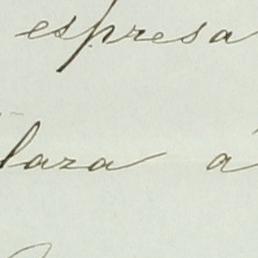 espresa
laza á